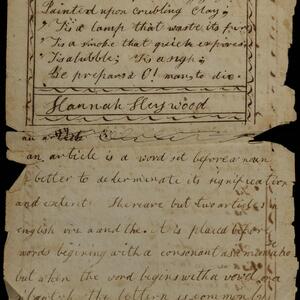 Painted upon crubling clay;
'Tis a lamp that waste its fire,
'Tis a smoke that quick expires
'Tis a bubble; 'Tis a sigh;
Be prepar'd O! man, to die.
Hannah Heywood
an
an article is a word set before a noun
better to dederminate its signification
and extent. There are but two articles in
english viz a and the. A is placed before
words begining with a consonant as
but when the word begins with a vowel or a
the letter is comm